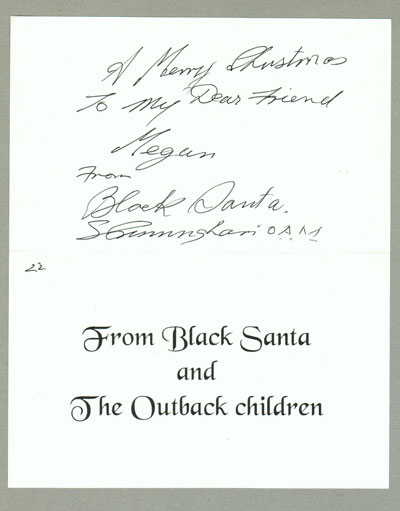 A Merry Christmas
To My Dear Friend
Megan
From
Black Santa.
S Cunningham O.A.M
22
From Black Santa
and
The Outback children